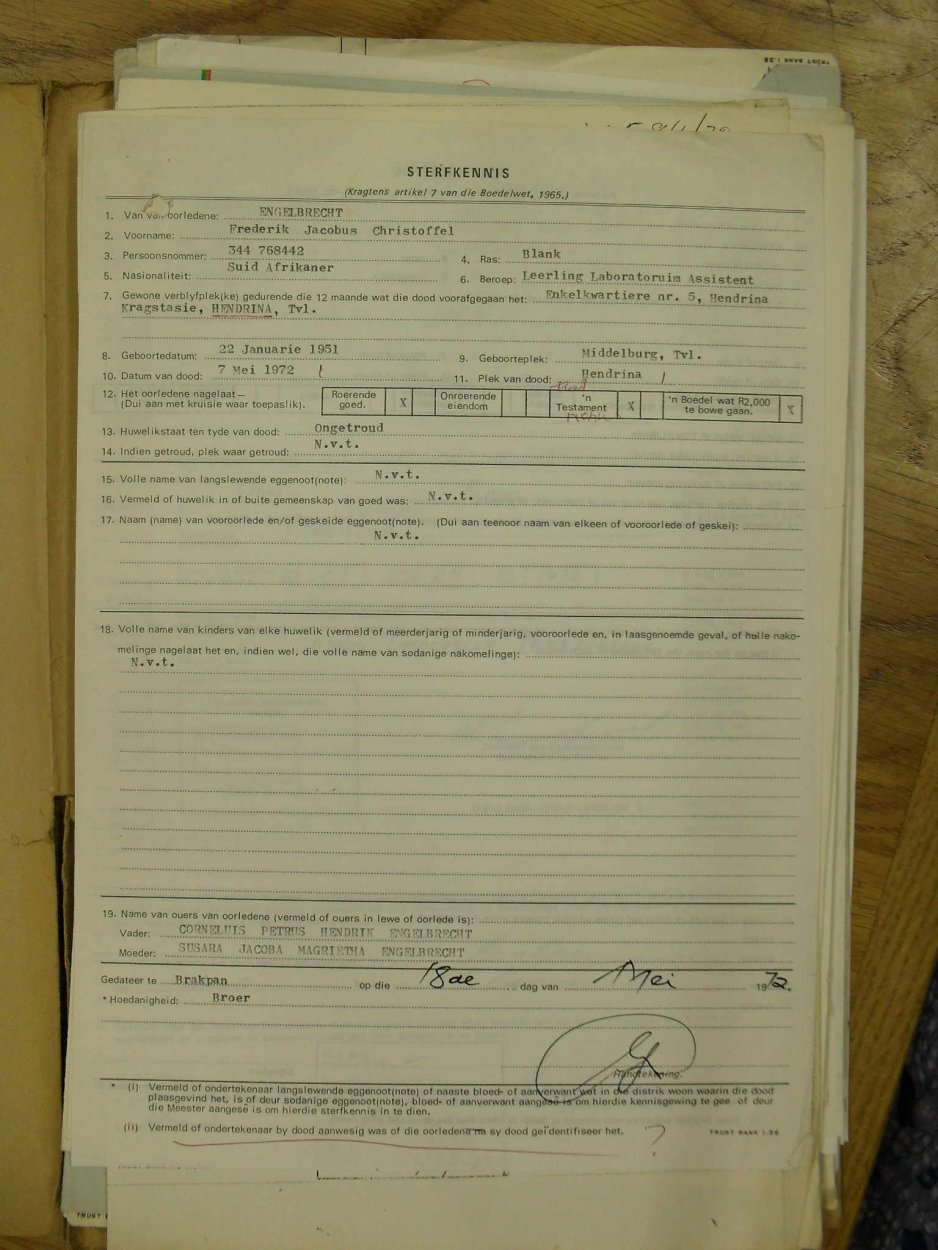 TRUST BANK 1.36
STERFKENNIS
(Kragtens artikel 7 van die Boedelwet, 1965.)
1. Van van oorledene: ENGELBRECHT
2. Voorname: Frederik Jacobus Christoffel
3. Persoonsnommer: 344 768442 4. Ras: Blank
5. Nasionaliteit: Suid Afrikaner 6. Beroep: Leerling Laboratoruim Assistent
7. Gewone verblyfplek(ke) gedurende die 12 maande wat die dood voorafgegaan het: Enkelkwartiere nr. 5, Hendrina
Kragstasie, HENDRINA, Tvl.
8. Geboortedatum: 22 Januarie 1951 9. Geboorteplek: Middelburg, Tvl.
10. Datum van dood: 7 Mei 1972 11. Plek van dood: Hendrina
12. Het oorledene nagelaat— (Dui aan met kruisie waar toepaslik). Roerende goed. X Onroerende eiendom 'n Testament X 'n Boedel wat R2,000 te bowe gaan. X
13. Huwelikstaat ten tyde van dood: Ongetroud
14. Indien getroud, plek waar getroud: N.v.t.
15. Volle name van langslewende eggenoot(note): N.v.t.
16. Vermeld of huwelik in of buite gemeenskap van goed was: N.v.t.
17. Naam (name) van vooroorlede en/of geskeide eggenoot(note). (Dui aan teenoor naam van elkeen of vooroorlede of geskei):
N.v.t.
18. Volle name van kinders van elke huwelik (vermeld of meerderjarig of minderjarig, vooroorlede en, in laasgenoemde geval, of hulle nako-
melinge nagelaat het en, indien wel, die volle name van sodanige nakomelinge):
N.v.t.
19. Name van ouers van oorledene (vermeld of ouers in lewe of oorlede is):
Vader: CORNELUIS PETRUS HENDRIK ENGELBRECHT
Moeder: SUSARA JACOBA MAGRIETHA ENGELBRECHT
Gedateer te Brakpan op die 18de dag van Mei 1972.
* Hoedanigheid: Broer
Handtekening.
* (i) Vermeld of ondertekenaar langslewende eggenoot(note) of naaste bloed- of aanverwant wat in die distrik woon waarin die dood
plaasgevind het, is of deur sodanige eggenoot(note), bloed- of aanverwant aangesê is om hierdie kennisgewing te gee of deur
die Meester aangesê is om hierdie sterfkennis in te dien.
(ii) Vermeld of ondertekenaar by dood aanwesig was of die oorledene na sy dood geïdentifiseer het. ?
TRUST BANK 1.36
TRUST